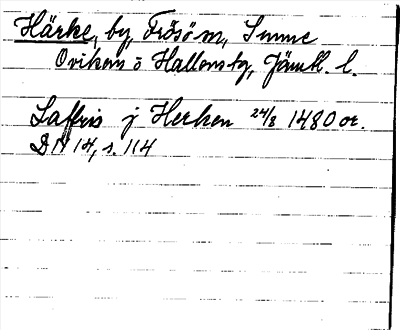 Härke, by, Frösö sn, Sunne
Oviken o Hallens tg, Jämtl. l.
Laffris j Herken 24/8 1480 or.
DN 14, s. 114